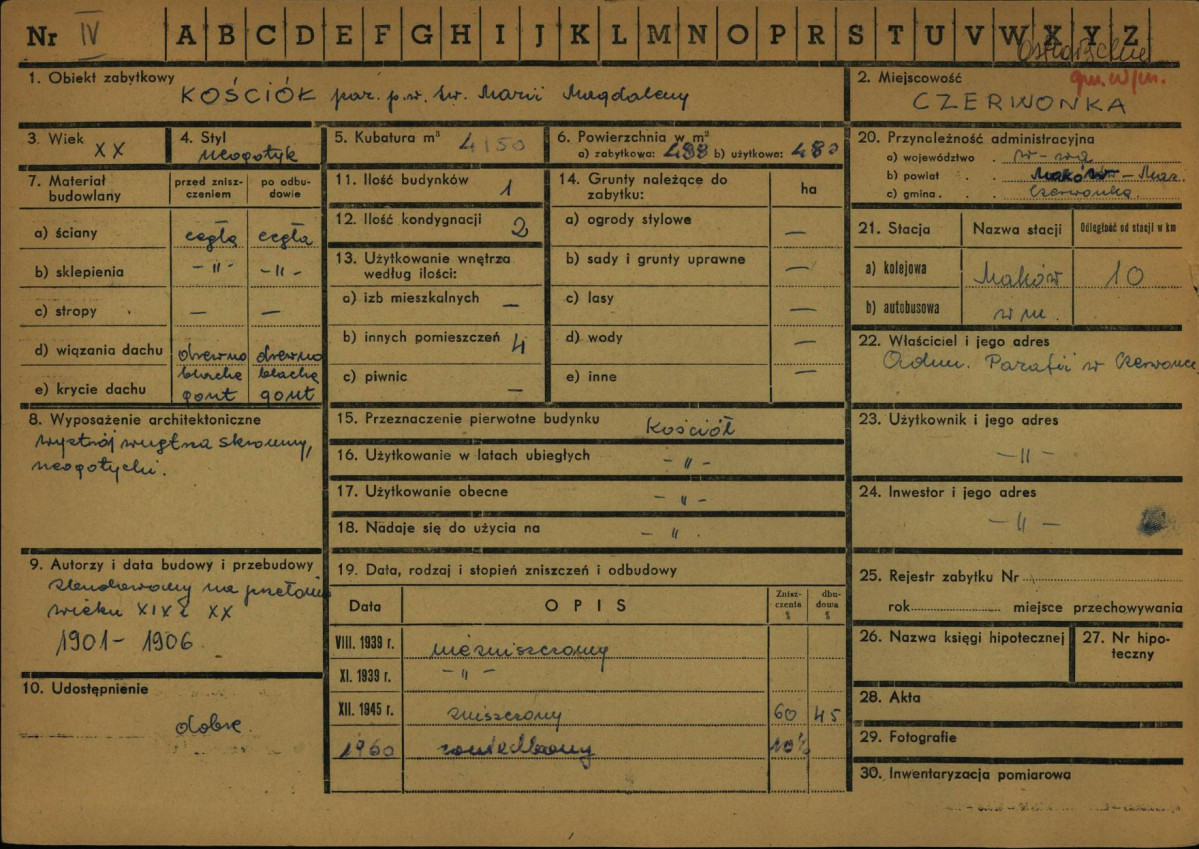 Nr IV A B C D E F G H I J K L M N O P R S T U V W X Y Z
1. Obiekt zabytkowy
KOŚCIÓŁ par. p.w. św. Marii Magdaleny
2. Miejscowość
gm. w/m.
CZERWONKA
3. Wiek
XX
4. Styl
neogotyk
5. Kubatura m³ 4150
6. Powierzchnia w m²
a) zabytkowa: 488 b) użytkowa: 480
20. Przynależność administracyjna
a) województwo . w-wa
b) powiat . . Maków - Maz.
c) gmina . . Czerwonka
7. Materiał budowlany
przed znisz-
czeniem
po odbu-
dowie
a) ściany cegła cegła
b) sklepienia -"- -"-
c) stropy — —
d) wiązania dachu drewno drewno
blacha blacha
e) krycie dachu gont gont
8. Wyposażenie architektoniczne
wystrój wnętrza skromny,
neogotycki.
9. Autorzy i data budowy i przebudowy
zbudowany na przełomie
wieku XIX i XX
1901 - 1906
10. Udostępnienie
dobre
11. Ilość budynków 1
12. Ilość kondygnacji 2
13. Użytkowanie wnętrza
według ilości:
a) izb mieszkalnych —
b) innych pomieszczeń 4
c) piwnic —
14. Grunty należące do
zabytku:
ha
a) ogrody stylowe —
b) sady i grunty uprawne —
c) lasy —
d) wody —
e) inne —
15. Przeznaczenie pierwotne budynku Kościół
16. Użytkowanie w latach ubiegłych -"-
17. Użytkowanie obecne -"-
18. Nadaje się do użycia na -"
19. Data, rodzaj i stopień zniszczeń i odbudowy
Data OPIS
Znisz-
czenia
%
dbu-
dowa
%
VIII. 1939 r. niezniszczony
XI. 1939 r. -"-
XII. 1945 r. zniszczony 60 45
1960 10%
21. Stacja Nazwa stacji Odległość od stacji w km
a) kolejowa Maków 10
b) autobusowa w m.
22. Właściciel i jego adres
Adm. Parafii w Czerwonce
23. Użytkownik i jego adres
-"-
24. Inwestor i jego adres
-"-
25. Rejestr zabytku Nr
rok miejsce przechowywania
26. Nazwa księgi hipotecznej
27. Nr hipo-
teczny
28. Akta
29. Fotografie
30. Inwentaryzacja pomiarowa